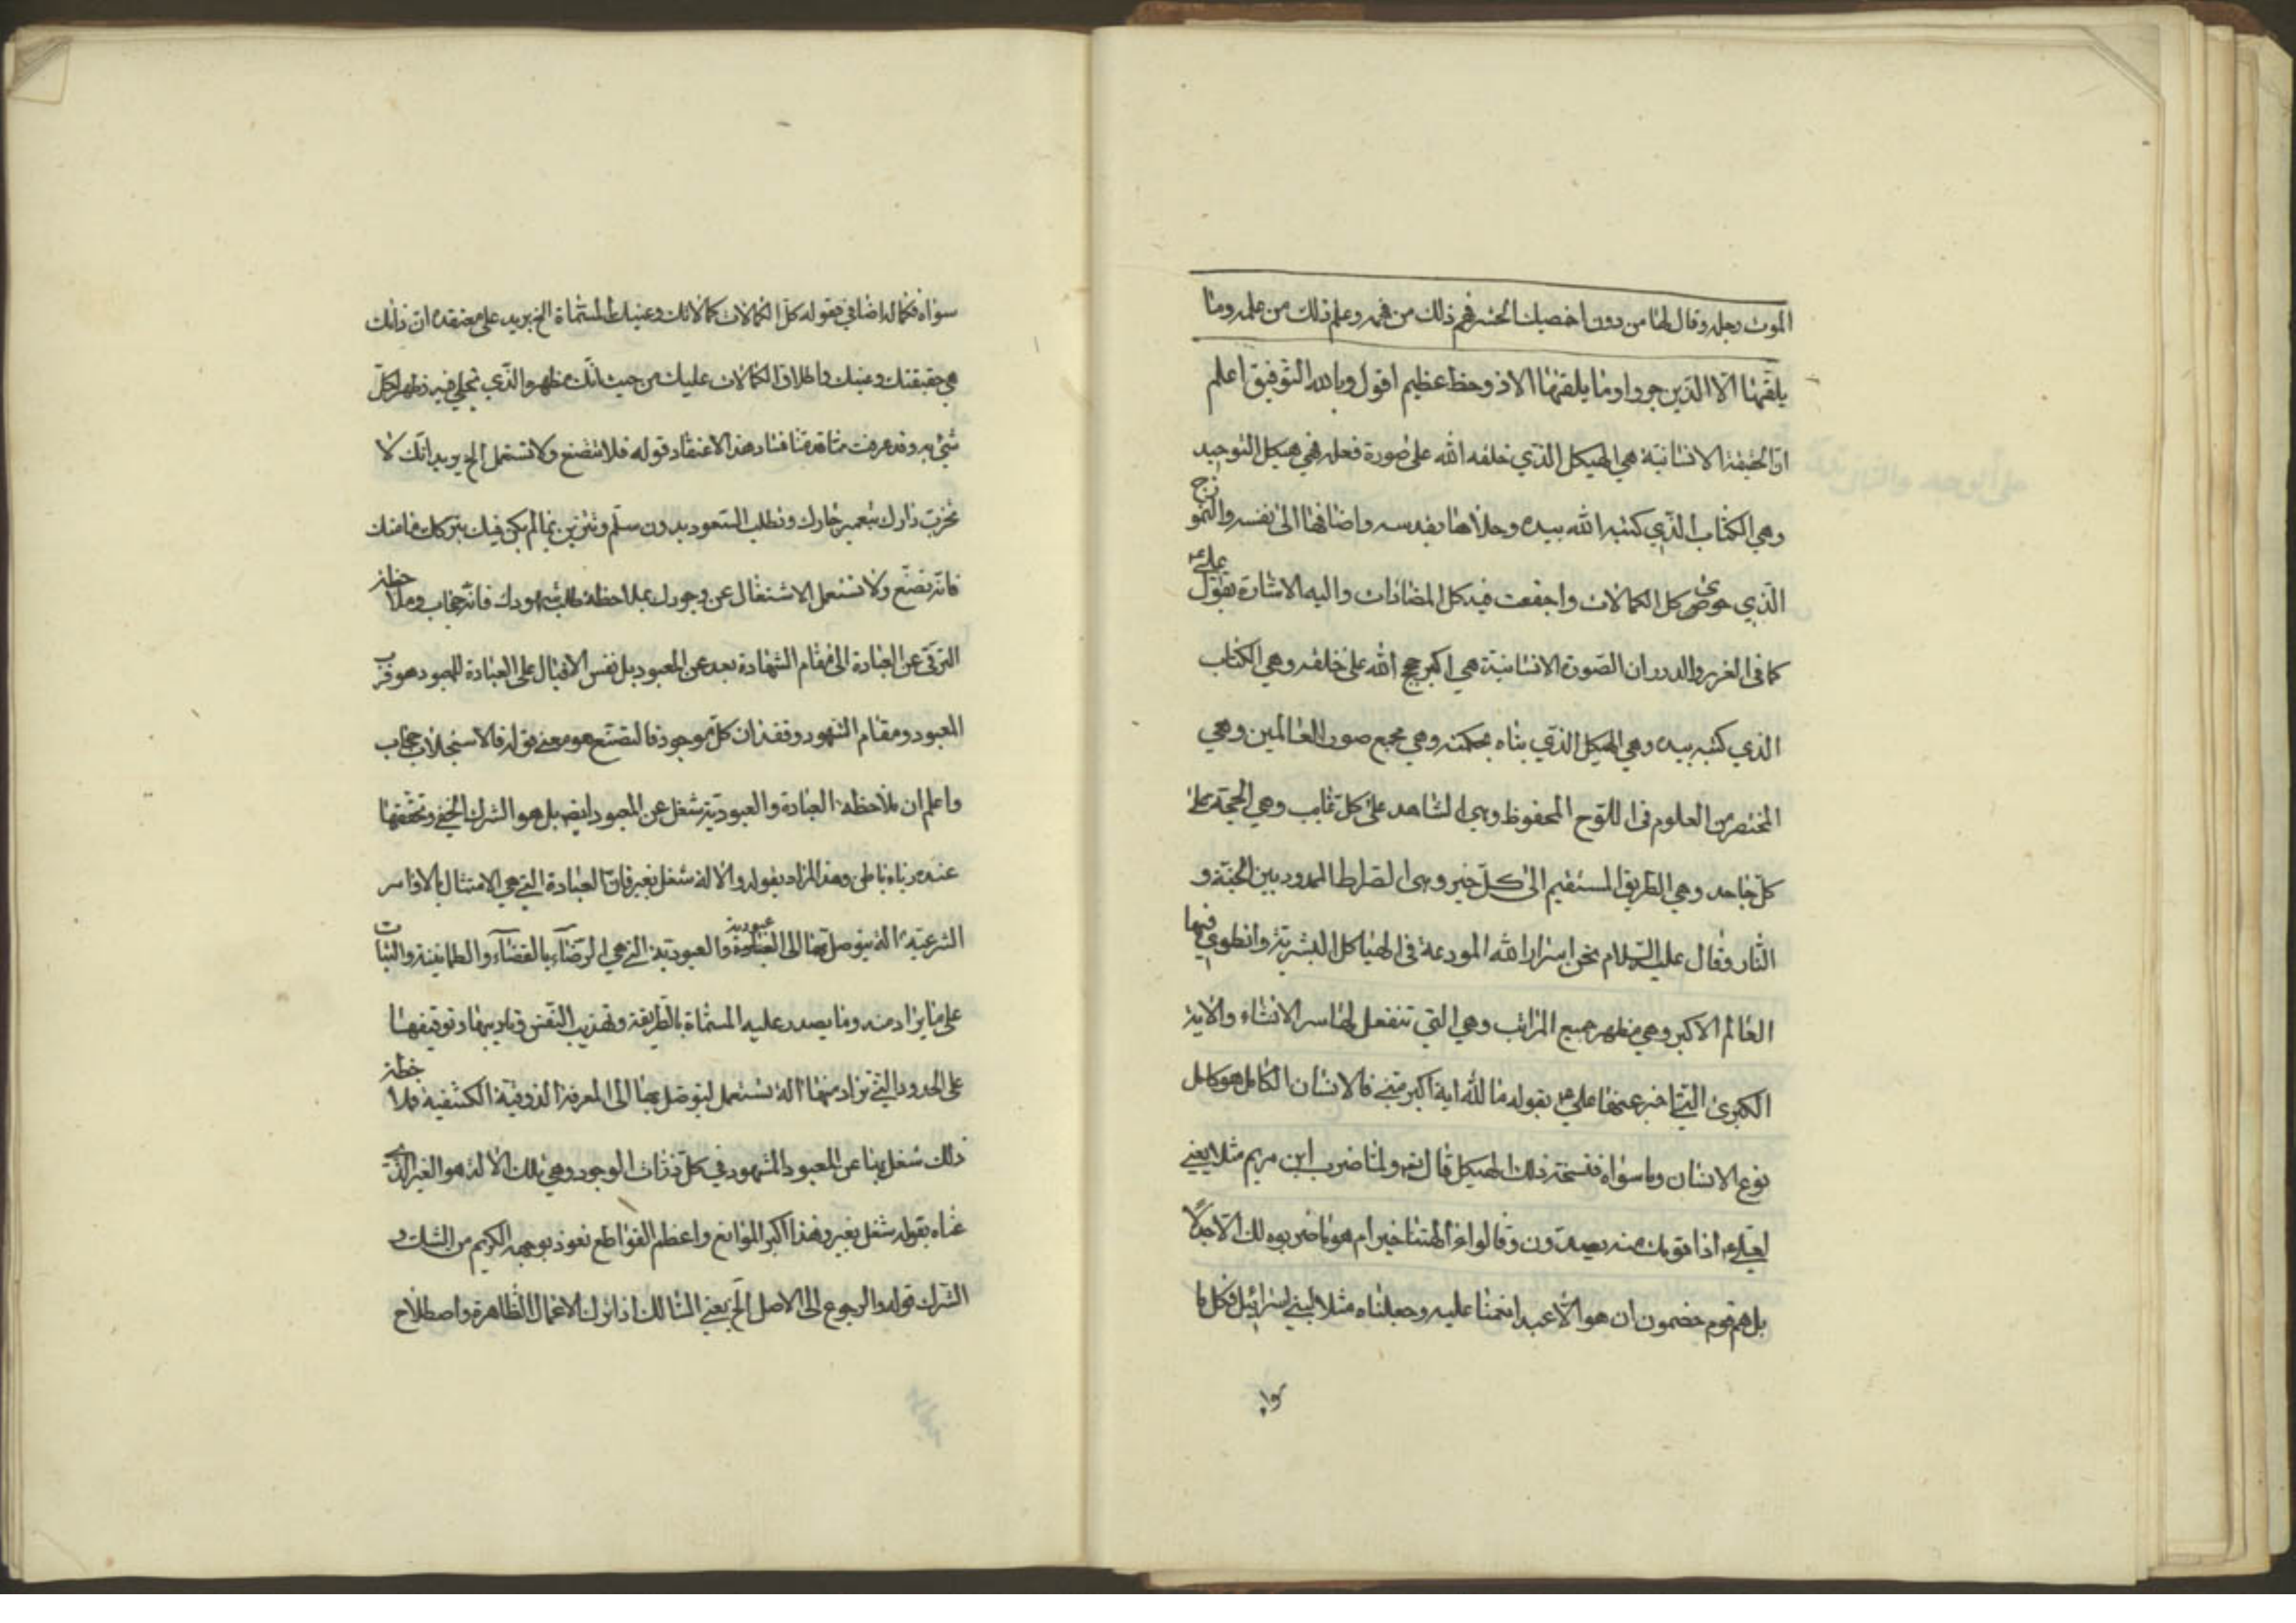 الموت رجله وقال لها من دون اخمصيك الحشر فهم ذلك من فهمه وعلم ذلك من علمه وما
يلقيها الا الذين صبروا وما يلقيها الا ذو حظ عظيم اقول وبالله التوفيق اعلم
ان الحقيقة الانسانية هي الهيكل الذي خلقه الله على صورة فعله فهي هيكل التوحيد
وهي الكتاب الذي كتبه الله بيده وحلاها بقدسه واضافها الى نفسه والنموذج
الذي حوى كل الكمالات واجتمعت فيه كل المضادات واليه الاشارة بقول علي ع
كما في الغرر والدرر ان الصورة الانسانية هي اكبر حجج الله على خلقه وهي الكتاب
الذي كتبه بيده وهي الهيكل الذي بناه بحكمته وهي مجمع صور العالمين وهي
المختصر من العلوم في اللوح المحفوظ وهي الشاهد على كل غايب وهي الحجة على
كل جاحد وهي الطريق المستقيم الى كل خير وهي الصراط الممدود بين الجنة و
النار وقال عليه السلام نحن اسرار الله المودعة في الهياكل البشرية وانطوى فيها
العالم الاكبر وهي مظهر جميع المراتب وهي التي تنفعل لها سر الانشاء والاية
الكبرى التي اخبر عنها علي ع بقوله ما لله اية اكبر مني فالانسان الكامل هو كامل
نوع الانسان وما سواه فنسخة ذلك الهيكل قال تعه ولما ضرب ابن مريم مثلا يعني
لعلي ع اذا قومك منه يصدون وقالوا ءالهتنا خير ام هو ما ضربوه لك الا جدلا
بل هم قوم خصمون ان هو الا عبد انعمنا عليه وجعلناه مثلا لبني اسرائيل فكل ما
سواه فكماله اضافي فقوله كل الكمالات كمالاتك وعينيك المسماة الخ يريد على معتقده ان ذاتك
هي حقيقتك وعينك واطلاق الكمالات عليك من حيث انك مظهر والذي تجلى فيه فظهر لكل
شيء به وقد عرفت مما قدمنا فساد هذا الاعتقاد قوله فلا تتصنع ولا تستعمل الخ يريد انك لا
تخرب دارك بتعمير جارك وتطلب الصعود بدون سلم وتتزين بما لم يكن فيك بتركك ما منك
فانه تصنع ولا تستعمل الاشتغال عن وجودك بملاحظة طلب شهودك فانه حجاب وملاحظة
الترقي عن العبادة الى مقام الشهادة بعد عن المعبود بل نفس الاقبال على العبادة للمعبود هو قرب
المعبود ومقام الشهود وفقدان كل موجود فالتصنع هو معنى قوله فالاستجلاب حجاب
واعلم ان ملاحظة العبادة والعبودية شغل عن المعبود ايضا بل هو الشرك الخفي وتحققها
عنده رياء باطن وهذا المراد بقوله والالة شغل بغير فان العبادة التي هي الامتثال بالاوامر
الشرعية الة يتوصل بها الى العبودية والعبودية التي هي الرضاء بالقضاء والطمانينة والثبات
على ما يراد منه وما يصدر عليه المسماة بالطريقة وتهذيب النفس وتاديبها وتوقيفها
على الحدود التي تراد منها الة تستعمل ليتوصل بها الى المعرفة الذوقية الكشفية فملاحظة
ذلك شغل بها عن المعبود المشهود في كل ذرات الوجود وهي تلك الالة هو الغير الذي
عناه بقوله شغل بغير وهذا اكبر الموانع واعظم القواطع نعوذ بوجهه الكريم من الشك و
الشرك قوله والرجوع الى الاصل الخ يعني السالك اذا ترك الاعمال الظاهرة واصطلاح